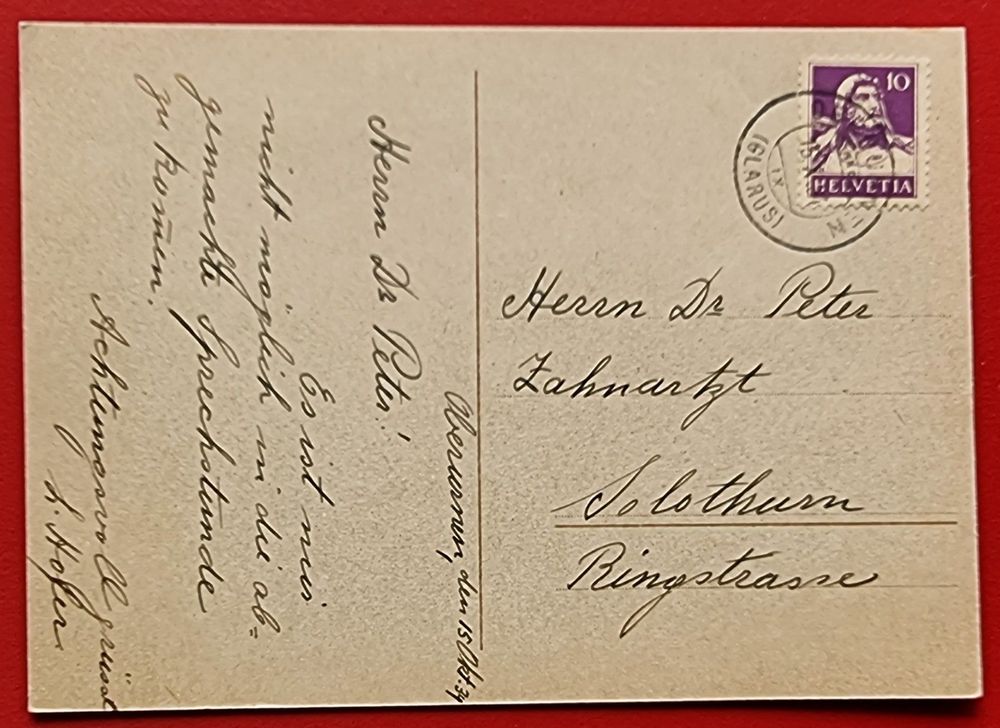 Oberurnen, den 15 Okt. 34
Herrn Dr. Peter!
Es ist mir
nicht möglich in die ab=
gemachte Sprechstunde
zu kom̄en.
Achtungsvoll grüsst
L. Hofer
10
HELVETIA
(GLARUS)
Herrn Dr. Peter
Zahnartzt
Solothurn
Ringstrasse